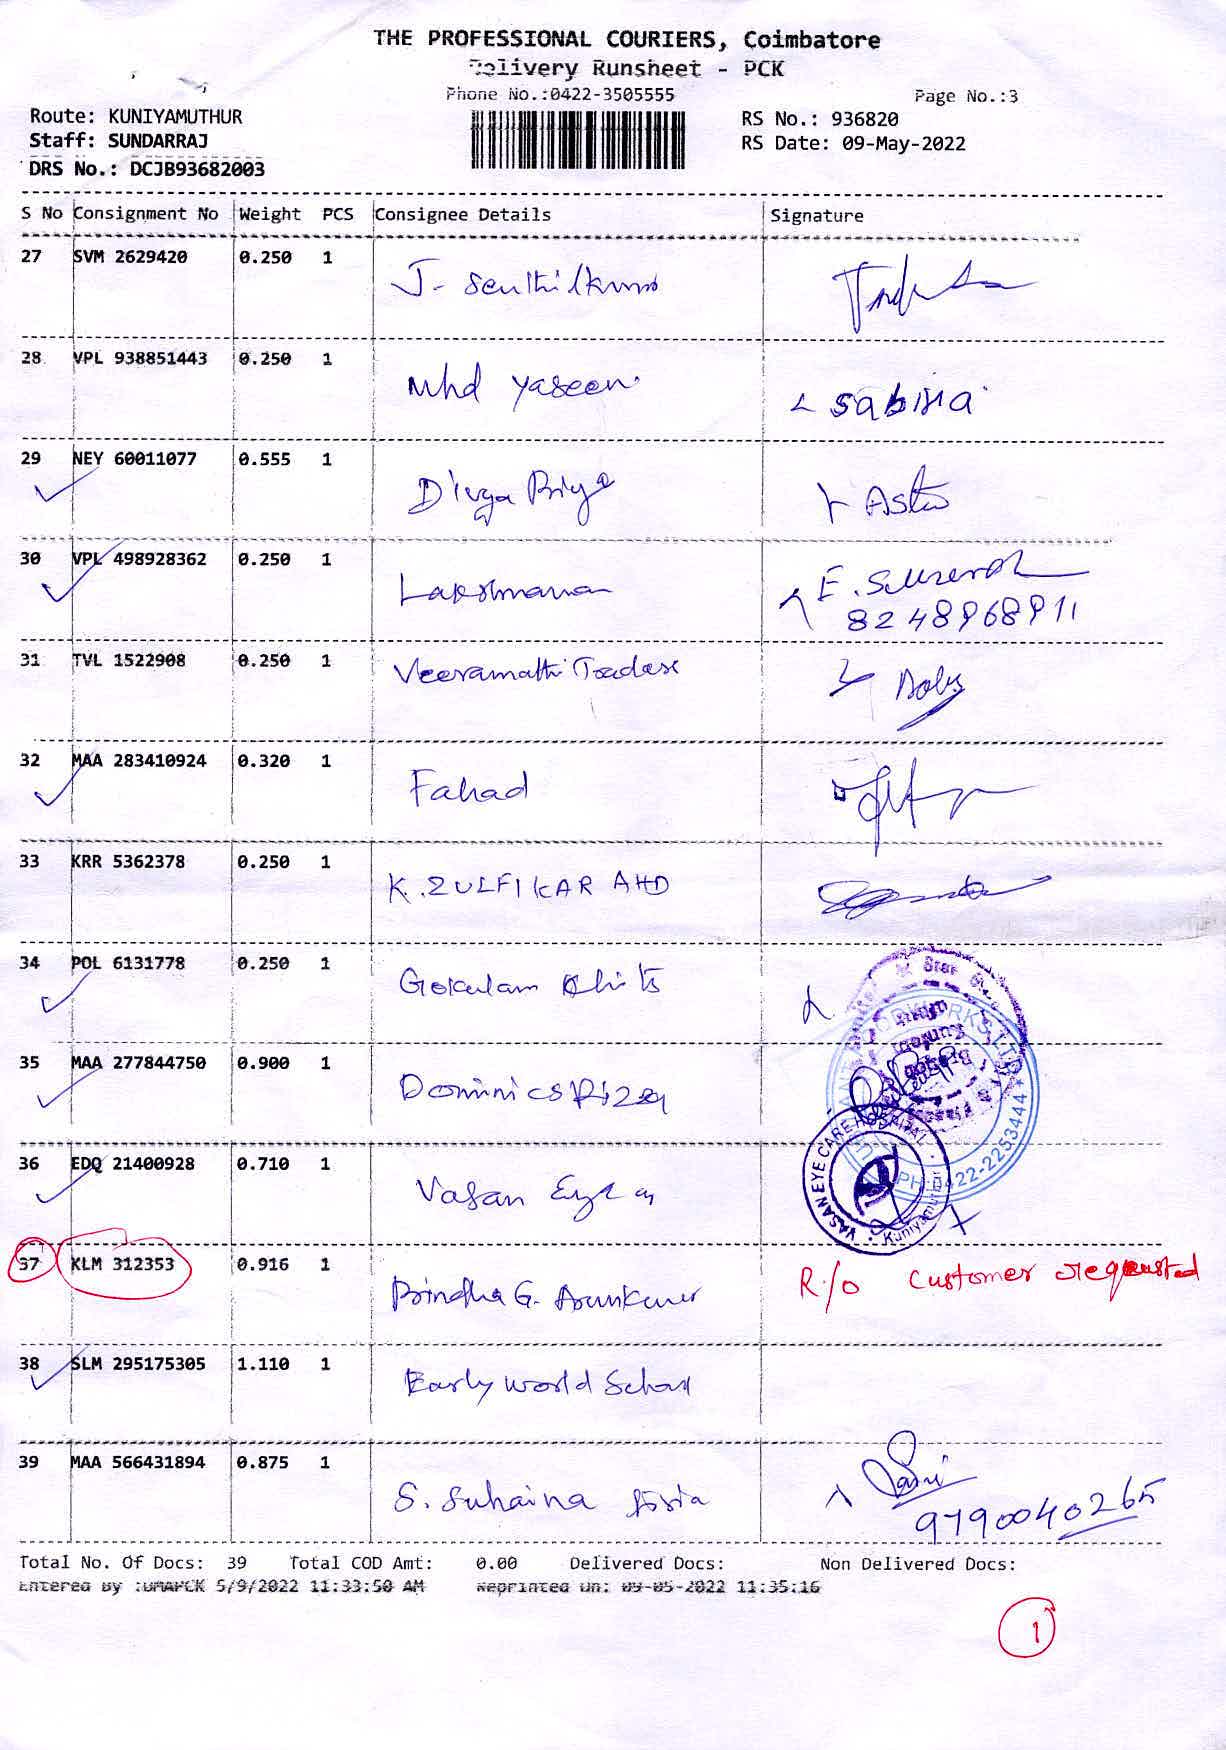 THE PROFESSIONAL COURIERS, Coimbatore
Delivery Runsheet - PCK
Phone No.:0422-3505555
Page No.:3
Route: KUNIYAMUTHUR
RS No.: 936820
Staff: SUNDARRAJ
RS Date: 09-May-2022
DRS No.: DCJB93682003
S No Consignment No Weight PCS Consignee Details Signature
27 SVM 2629420 0.250 1
J. Senthilkumar
28 VPL 938851443 0.250 1
Mhd Yaseen
Sabina
29 NEY 60011077 0.555 1
Divya Priya
30 VPL 498928362 0.250 1
Lakshmanan
E. Surendh
8248968911
31 TVL 1522908 0.250 1
Veeramathi Traders
32 MAA 283410924 0.320 1
Fahad
33 KRR 5362378 0.250 1
K. ZULFIKAR AHD
34 POL 6131778 0.250 1
Gokulam Chits
35 MAA 277844750 0.900 1
Dominics Pizza
36 EDQ 21400928 0.710 1
Vasan Eye
VASAN EYE CARE HOSPITAL
Kuniyamuthur
PH:0422-2253444
37 KLM 312353 0.916 1
Brindha G. Arunkumar
R/o Customer requested
38 SLM 295175305 1.110 1
Early World School
39 MAA 566431894 0.875 1
S. Suhaina
9790040265
Total No. Of Docs: 39 Total COD Amt: 0.00 Delivered Docs: Non Delivered Docs:
Entered By :UMAPCK 5/9/2022 11:33:50 AM Reprinted On: 09-05-2022 11:35:16
1